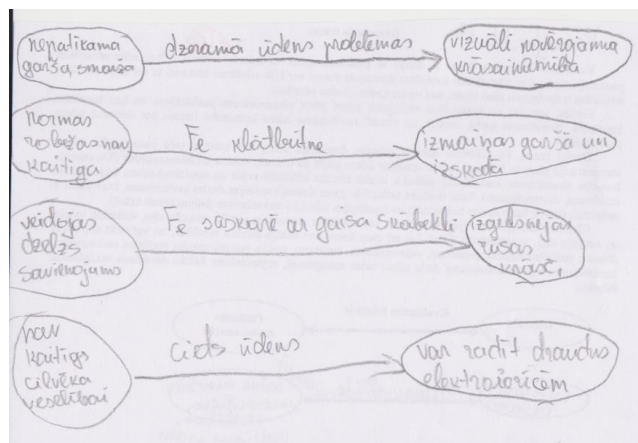 nepatīkama
garša, smarža
dzeramā ūdens problēmas
vizuāli novērojama
krāsainamība
normas
robežās nav
kaitīga
Fe klātbūtne
izmaiņas garšā un
izskatā
veidojas
dzelzs
savienojums
Fe saskarē ar gaisa skābekli
izgulsnējas
rūsas
krāsā,
nav
kaitīgs
cilvēka
veselībai
ciets ūdens
var radīt draudus
elektroierīcēm